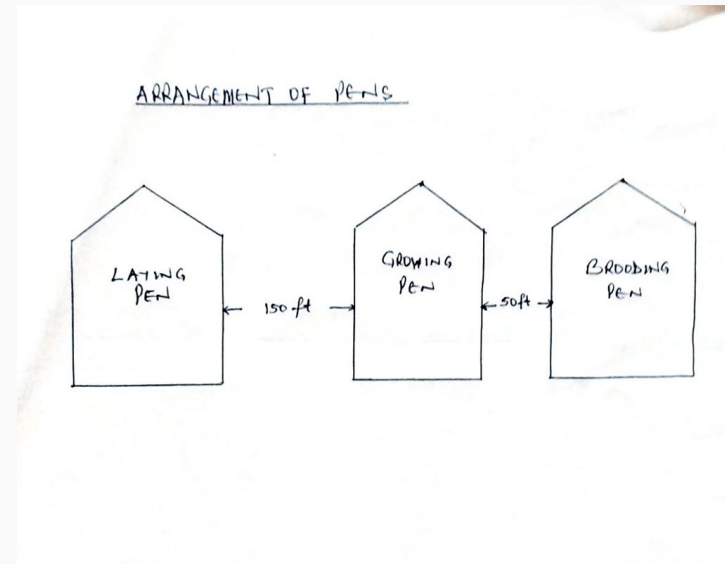 ARRANGEMENT OF PENS
LAYING
PEN
150 ft
GROWING
PEN
50ft
BROODING
PEN